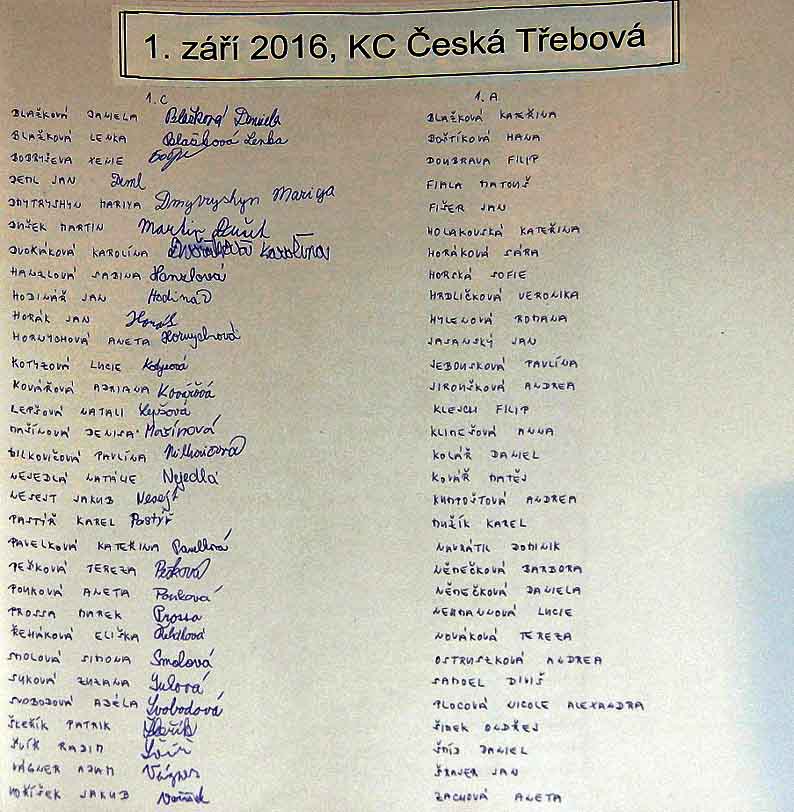 1. září 2016, KC Česká Třebová
1.C
BLAŽKOVÁ DANIELA Blažková Daniela
BLAŽKOVÁ LENKA Blažková Lenka
BOBRYŠEVA XENIE
DEML JAN Deml
DMYTRYSHYN MARIYA Dmytryshyn Mariya
DUŠEK MARTIN Martin Dušek
DVOŘÁKOVÁ KAROLÍNA Dvořáková Karolína
HANZLOVÁ SABINA Hanzlová
HODINÁŘ JAN Hodinář
HORÁK JAN Horák
HORNYCHOVÁ ANETA Hornychová
KOTYZOVÁ LUCIE Kotyzová
KOVÁŘOVÁ ADRIANA Kovářová
LEPŠOVÁ NATALI Lepšová
MAŠÍNOVÁ DENISA Mašínová
MILKOVIČOVÁ PAVLÍNA
NEJEDLÁ NATÁLIE Nejedlá
NESEJT JAKUB Nesejt
PASTÝŘ KAREL Pastýř
PAVELKOVÁ KATEŘINA Pavelková
PEŠKOVÁ TEREZA Pešková
POUKOVÁ ANETA Pouková
PROSSA MAREK Prossa
ŘEHÁKOVÁ ELIŠKA Řeháková
SMOLOVÁ SIMONA Smolová
SUKOVÁ ZUZANA
SVOBODOVÁ ADÉLA Svobodová
ŠKEŘÍK PATRIK Škeřík
RADIM
VÁGNER ADAM Vágner
VOŘÍŠEK JAKUB Voříšek
1.A
BLAŽKOVÁ KATEŘINA
BOŠTÍKOVÁ HANA
DOUBRAVA FILIP
FIALA MATOUŠ
FIŠER JAN
HOLAKOVSKÁ KATEŘINA
HORÁKOVÁ SÁRA
HORSKÁ SOFIE
HRDLIČKOVÁ VERONIKA
HYLENOVÁ ROMANA
JASANSKÝ JAN
JEBOUSKOVÁ PAVLÍNA
JIROUŠKOVÁ ANDREA
KLEJCH FILIP
KLIMEŠOVÁ ANNA
KOLÁŘ DANIEL
KOVÁŘ MATĚJ
KUMPOŠTOVÁ ANDREA
MUŽÍK KAREL
NAVRÁTIL DOMINIK
NĚMEČKOVÁ BARBORA
NĚMEČKOVÁ DANIELA
NEUMANNOVÁ LUCIE
NOVÁKOVÁ TEREZA
OSTRUSZKOVÁ ANDREA
SAMOEL DIVIŠ
PLOCOVÁ NICOLE ALEXANDRA
ŠIMEK ONDŘEJ
ŠMÍD DANIEL
ŠRAJER JAN
ZACHOVÁ ANETA